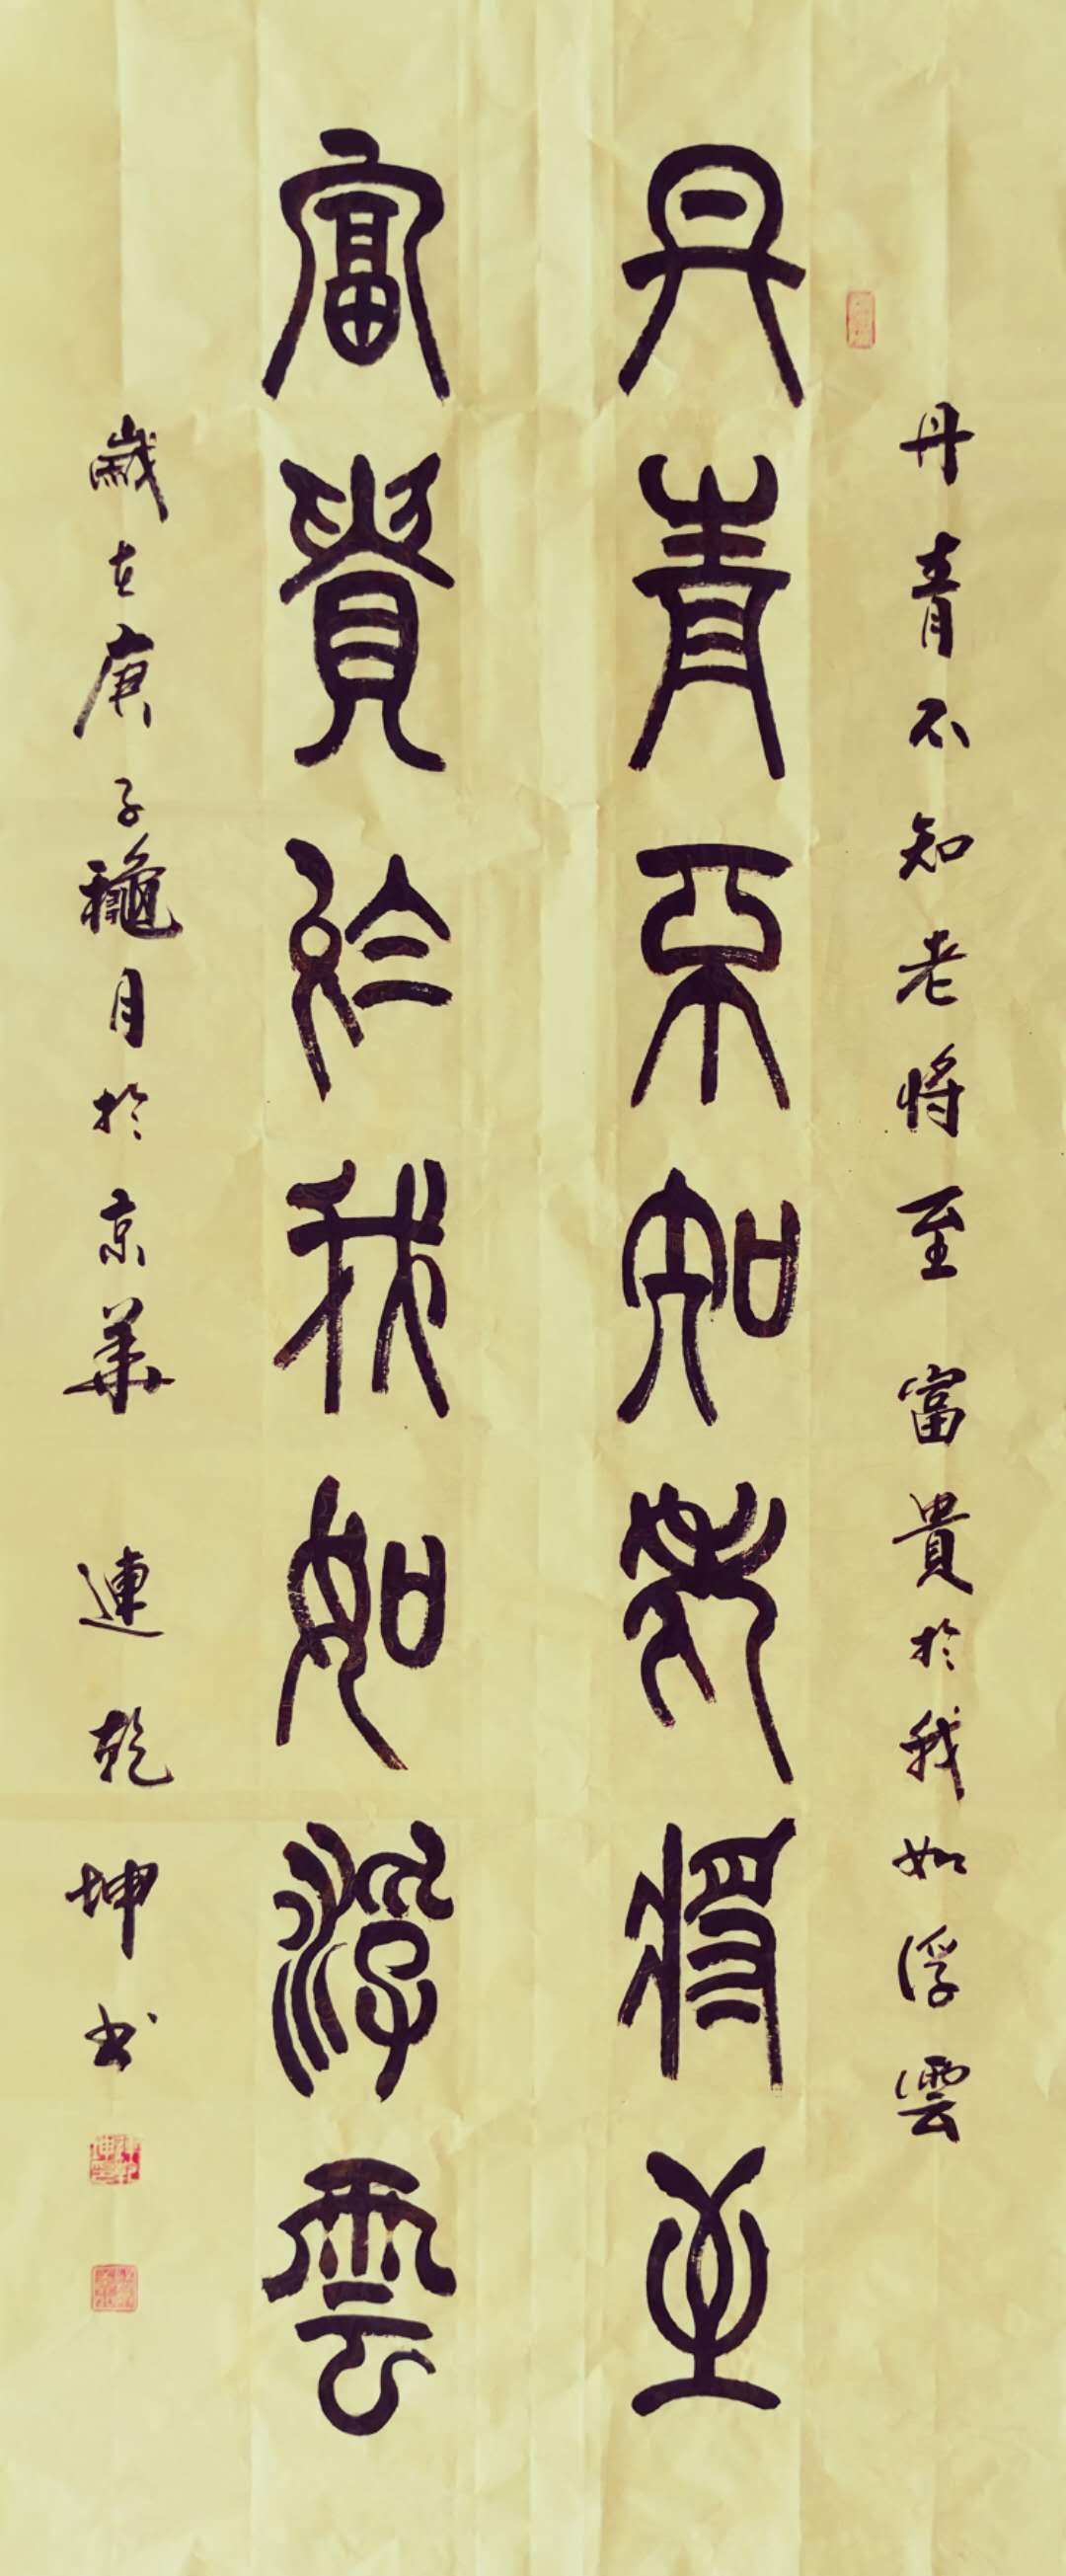 丹青不知老將至富貴於我如浮雲
丹青不知老將至
富貴於我如浮雲
歲在庚子龝月於京華連乾坤书